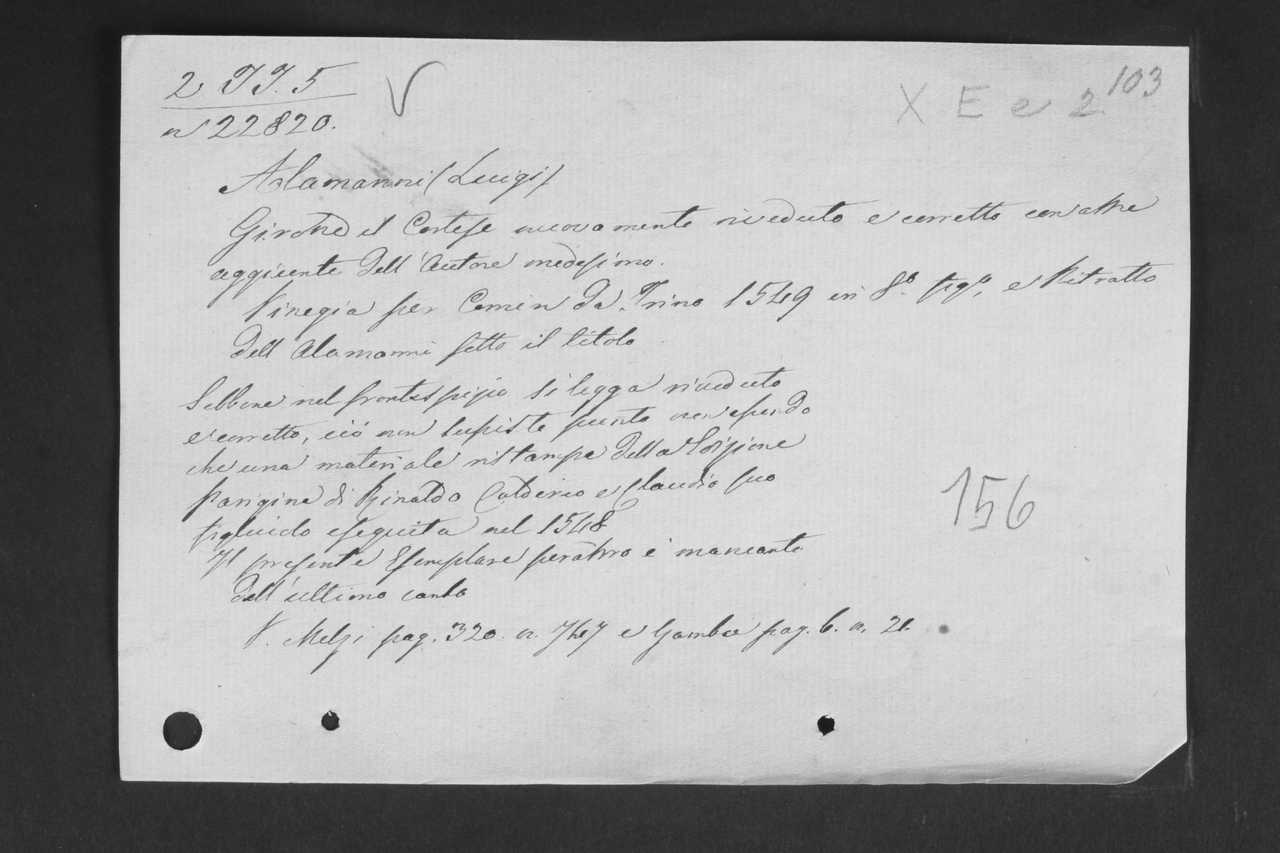 2 JJ. 5
n 22820.
X E e 2 103
Alamanni (Luigi)
Girone il Cortese nuovamente riveduto e corretto con altre
aggiunte dell'Autore medesimo.
Vinegia per Comin da Trino 1549 in 8.° fig.° e Ritratto
dell Alamanni sotto il titolo
Sebbene nel frontespizio si legga riveduto
e corretto, ciò non punto non essendo
che una materiale ristampa della Edizione
Parigina di Rinaldo Calderio e Claudio suo
figliuolo eseguita nel 1548
Il presente Esemplare peraltro è mancante
dell'ultimo canto
156
V. Melzi pag. 320. n. 747 e Gamba pag. 6. n. 21.